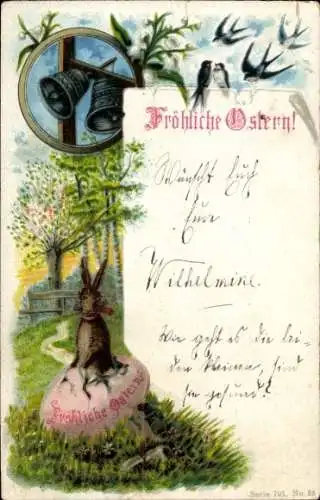 Fröhliche Ostern!
Wünscht Euch
Eure
Wilhelmine.
Wie geht es die bei-
den kleinen, sind
sie gesund?
Fröhliche Ostern
Serie 701. No.